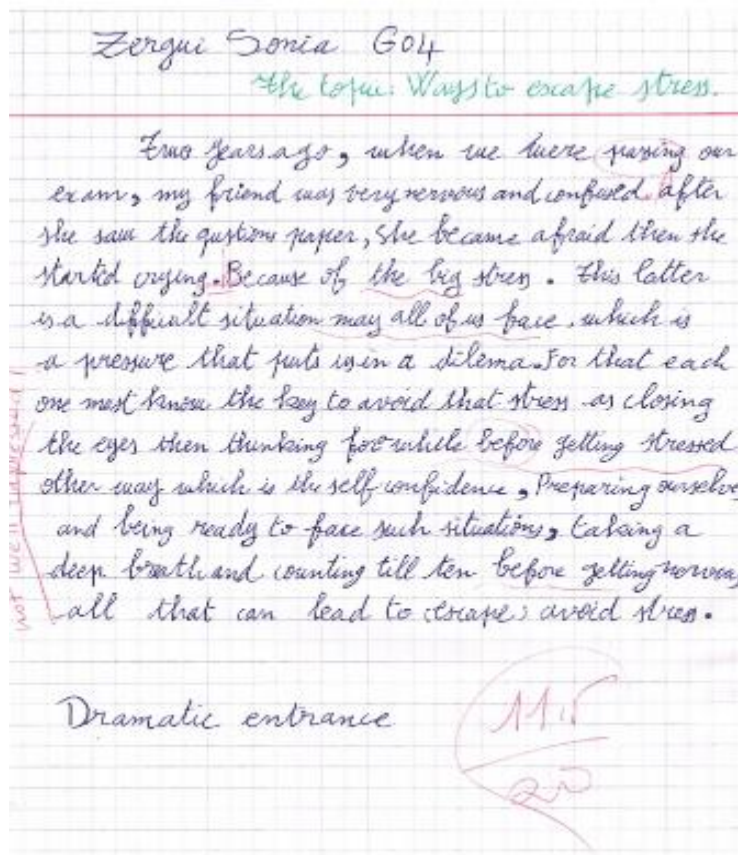 Zergui Sonia G04
the topic: Ways to escape stress.
Two years ago, when we were passing our
exam, my friend was very nervous and confused. after
she saw the qustions paper, she became afraid then she
started crying. Because of the big stress. this latter
is a difficult situation may all of us face, which is
a pressure that puts us in a dilema. For that each
one must know the key to avoid that stress as closing
the eyes then thinking for while before getting stressed
other way which is the self confidence, Preparing ourselves
and being ready to face such situations, taking a
deep breath and counting till ten before getting nervous,
all that can lead to (escape) avoid stress.
not well expressed!
Dramatic entrance
11.5
20